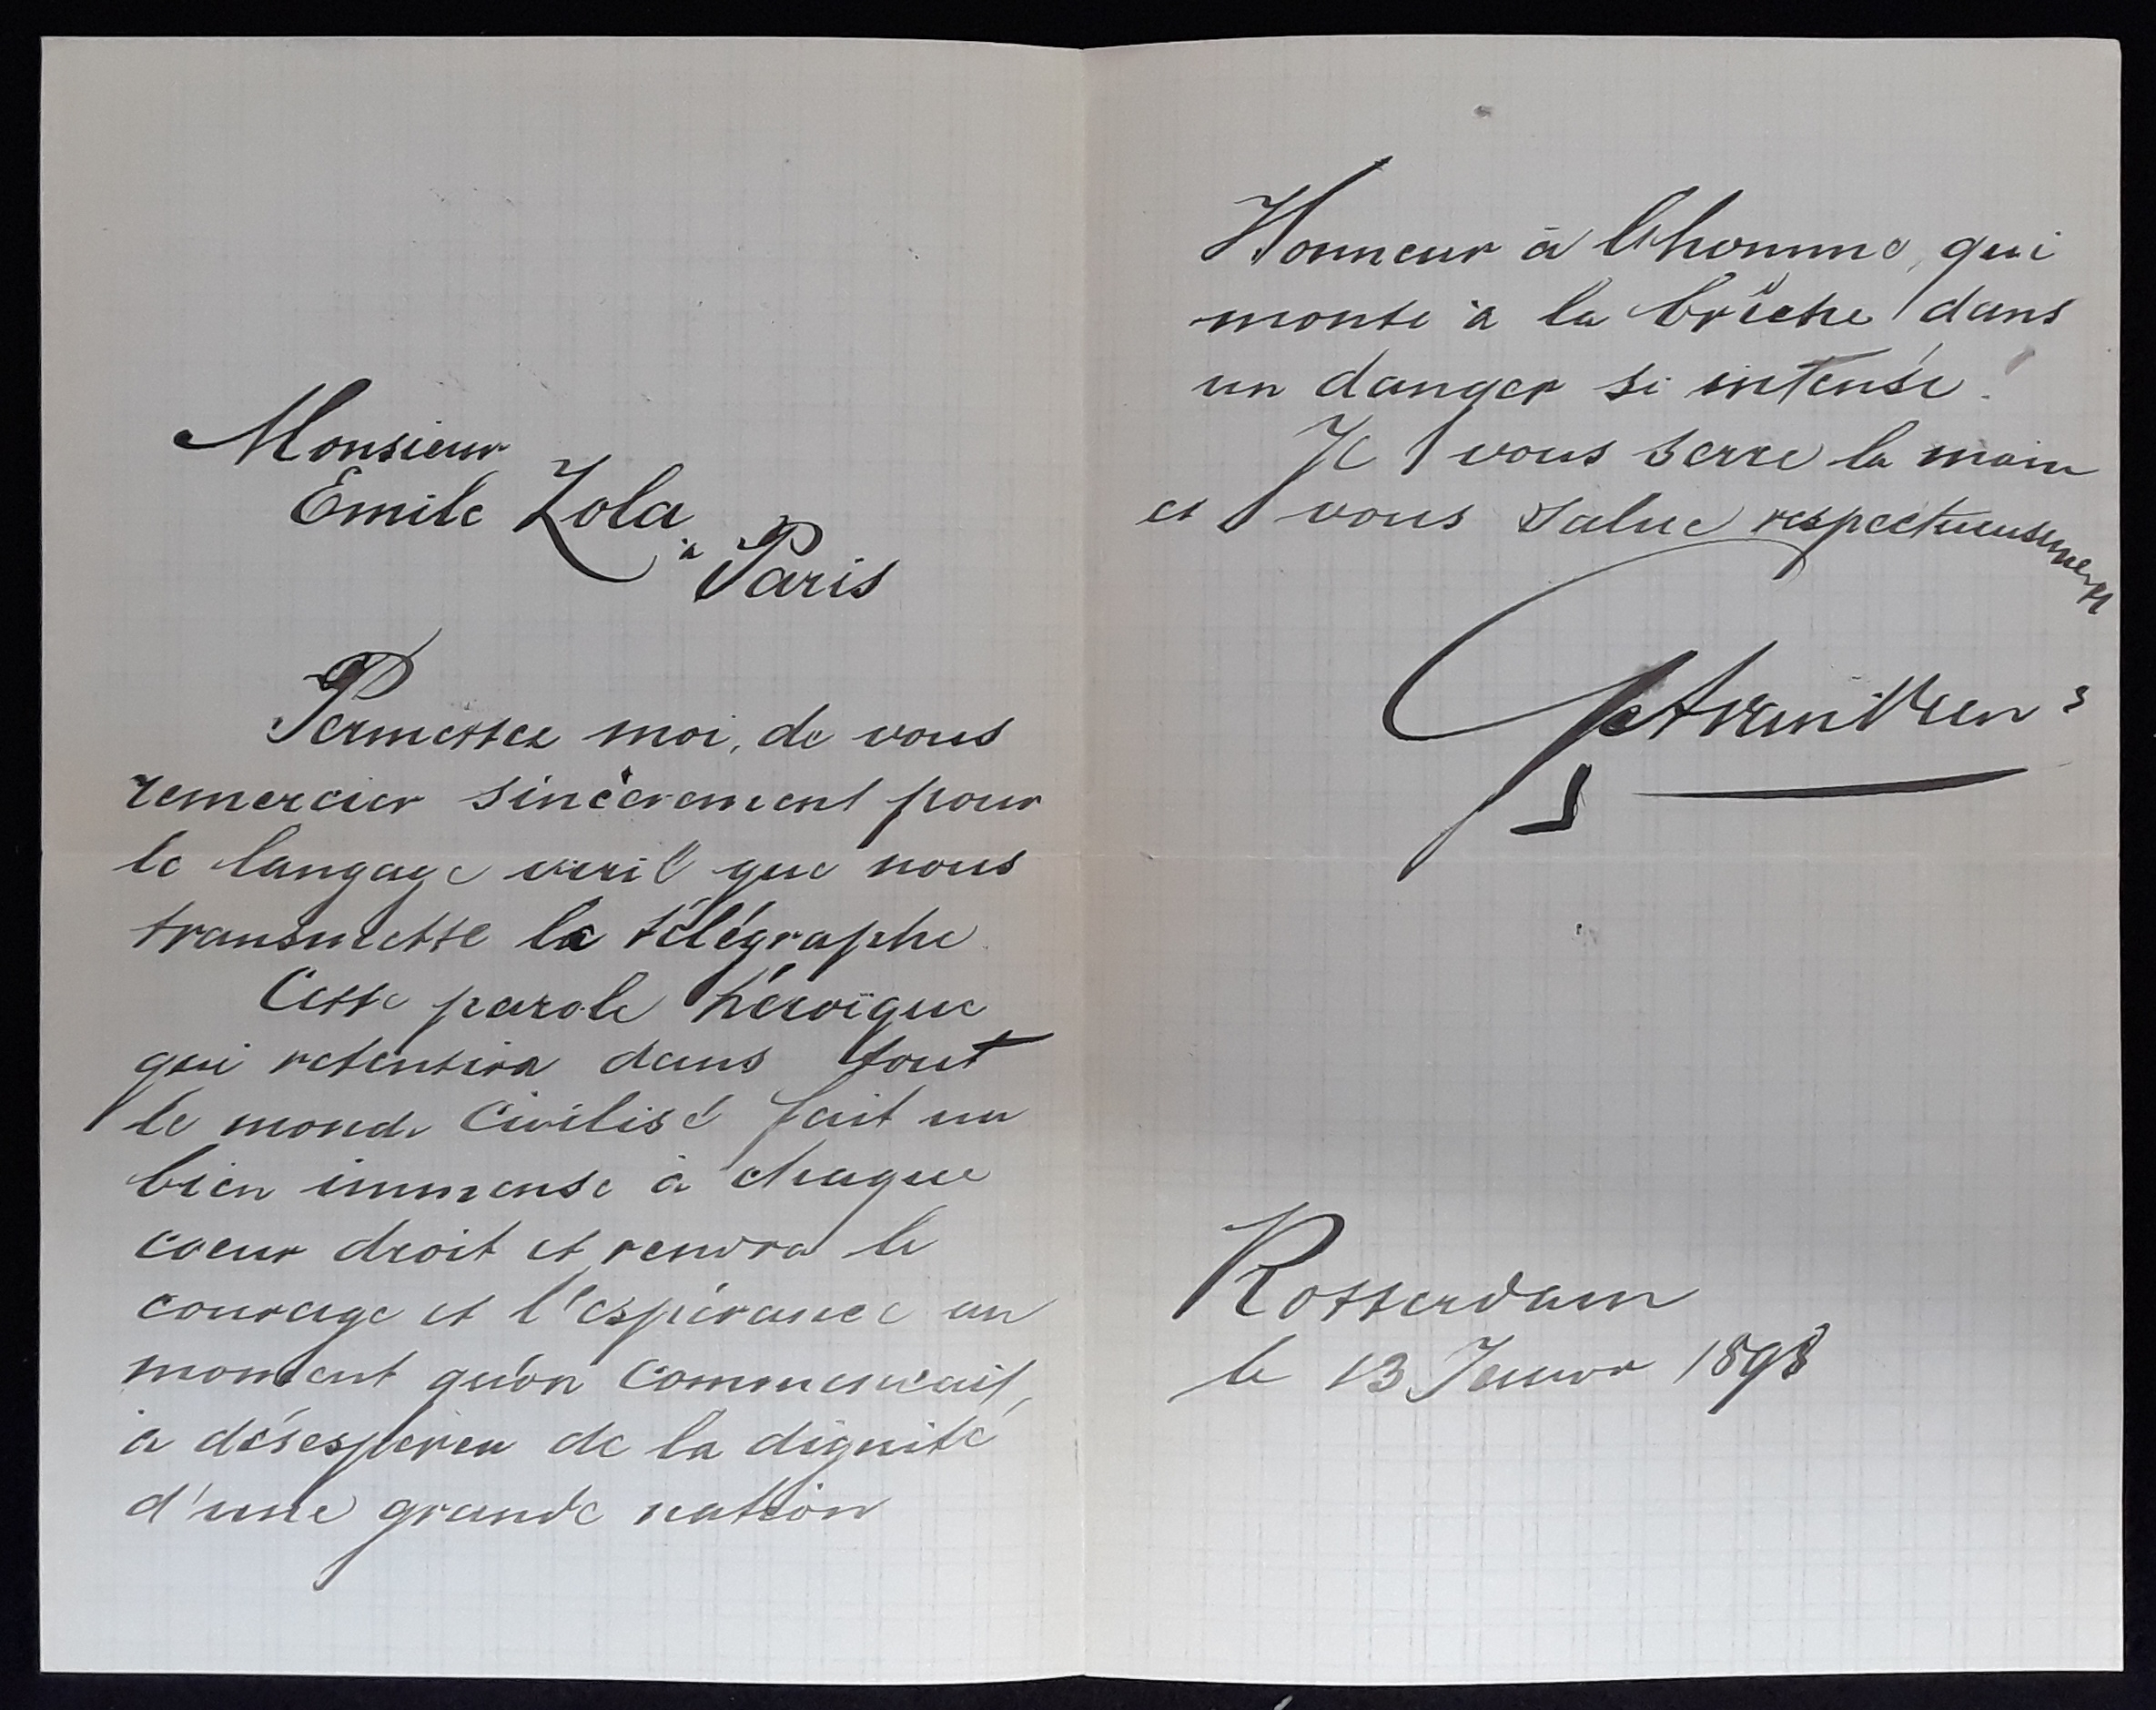 Monsieur
Emile Zola
à Paris
Permettez moi, de vous
remercier sincèrement pour
le langage viril que nous
transmette le télégraphe.
Cette parole héroïque
qui retentira dans tout
le monde civilisé fait un
bien immense à chaque
coeur droit et rendra le
courage et l'espérance au
moment qu'on commencait,
à désespérer de la dignité
d'une grande nation
Honneur à l'homme, qui
monte à la brêche dans
un danger si intense!
Je vous serre la main
et vous salue respectueusement
Rotterdam
le 13 Janvr 1898